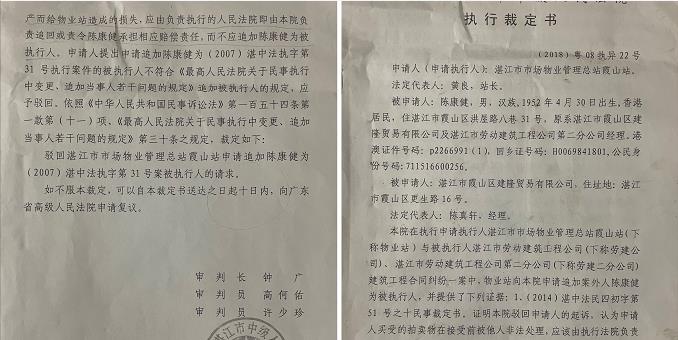 产而给物业站造成的损失,应由负责执行的人民法院即由本院负
责追回或责令陈康健承担相应赔偿责任,而不应追加陈康健为被
执行人。申请人提出申请追加陈康健为(2007)湛中法执字第
31 号执行案件的被执行人不符合《最高人民法院关于民事执行
中变更、追加当事人若干问题的规定》追加被执行人的规定,应
予驳回。依照《中华人民共和国民事诉讼法》第一百五十四条第
一款第(十一)项、《最高人民法院关于民事执行中变更、追加
当事人若干问题的规定》第三十条之规定,裁定如下:
驳回湛江市市场物业管理总站霞山站申请追加陈康健为
(2007)湛中法执字第 31 号案被执行人的请求。
如不服本裁定,可以自本裁定书送达之日起十日内,向广东
省高级人民法院申请复议。
审 判 长 钟 广
审 判 员 高何佑
审 判 员 许少珍
湛江市中级人
执行裁定书
(2018)粤 08 执异 22 号
申请人(申请执行人):湛江市市场物业管理总站霞山站。
法定代表人:黄良,站长。
被申请人:陈康健,男,汉族,1952 年 4 月 30 日出生,香港
居民,住湛江市霞山区洪屋路八巷 31 号,原系湛江市霞山区建
隆贸易有限公司及湛江市劳动建筑工程公司第二分公司经理。港
澳证件号码:p2266991(1)。回乡证号码:H0069841801。公民身
份号码:711516600256。
被申请人:湛江市霞山区建隆贸易有限公司,住址地:湛江
市霞山区更生路 16 号。
法定代表人:陈真轩,经理。
本院在执行申请执行人湛江市市场物业管理总站霞山站(下
称物业站)与被执行人湛江市劳动建筑工程公司(下称劳建公
司)、湛江市劳动建筑工程公司第二分公司(下称劳建二分公司)
建筑工程合同纠纷一案中,物业站向本院申请追加案外人陈康健
为被执行人,并提供了下列证据:1、(2014)湛中法民四初字第
51 号之十民事裁定书。证明本院驳回申请人的起诉,认为申请
人买受的拍卖物在接受前被他人非法处理,应该由执行法院负责